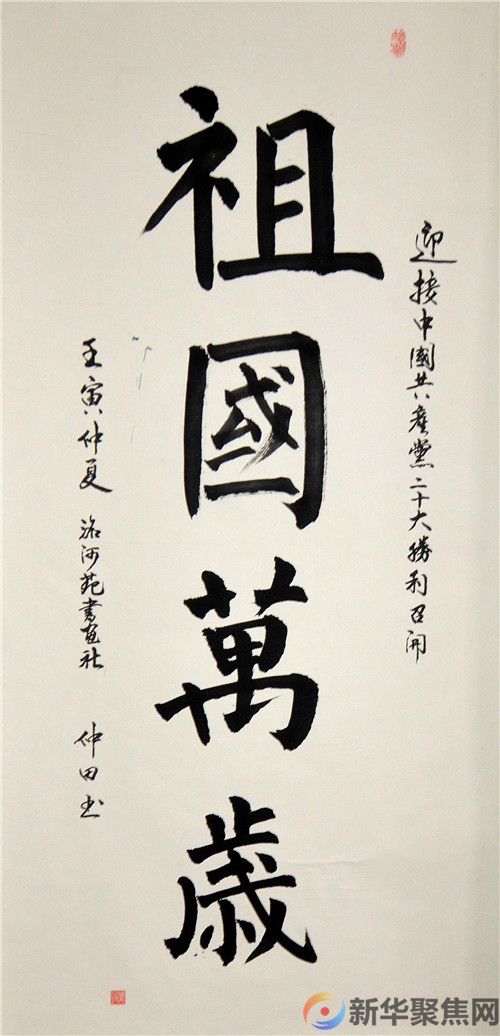 迎接中國共產黨二十大勝利召開
祖國萬歲
壬寅仲夏 洛河苑書畫社 仲田书
新华聚焦网